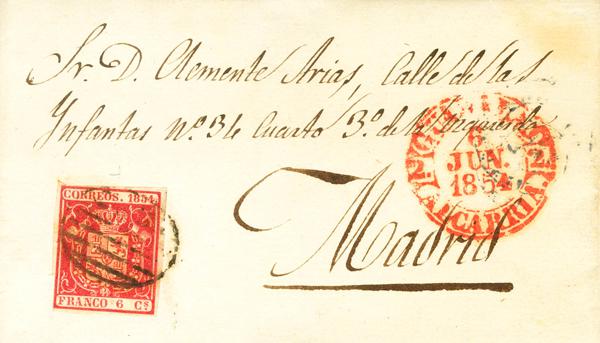 Sr. D. Clemente Arias, Calle de las
Infantas nº. 34 Cuarto 3º. de la Izquierda
Madrid
6
JUN.
1854
ALCARRIA.
CORREOS. 1854.
FRANCO 6 Cs